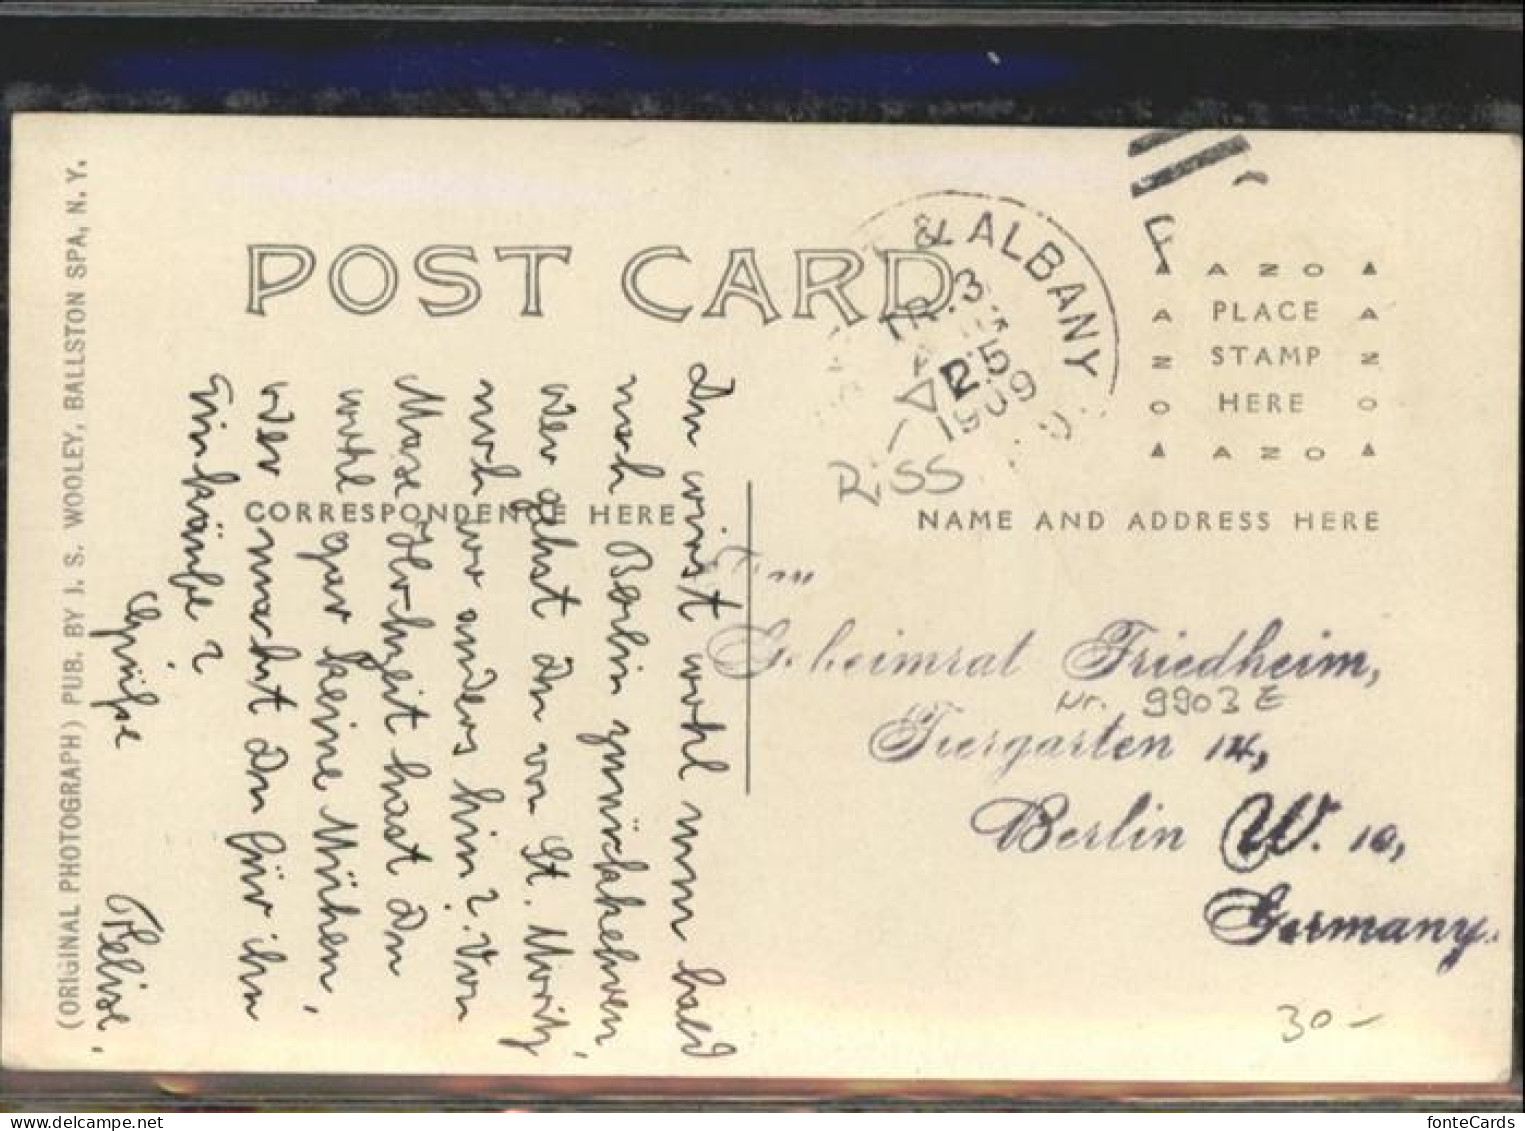 (ORIGINAL PHOTOGRAPH) PUB. BY J. S. WOOLEY, BALLSTON SPA, N. Y.
POST CARD
& ALBANY
TR. 3
25
1909
AZO
PLACE
STAMP
HERE
AZO
RISS
CORRESPONDENCE HERE
NAME AND ADDRESS HERE
Du wirst wohl nun bald
nach Berlin zurückkehren,
oder gehst Du von St. Moritz
noch wo anders hin? Von
Hochzeit hast Du
wohl gar keine Mühen,
oder machst Du für ihn
Einkäufe?
Grüße
Frau
Geheimrat Friedheim,
Nr. 9903 E
Tiergarten 14,
Berlin W. 10,
Germany.
30-
fonteCards